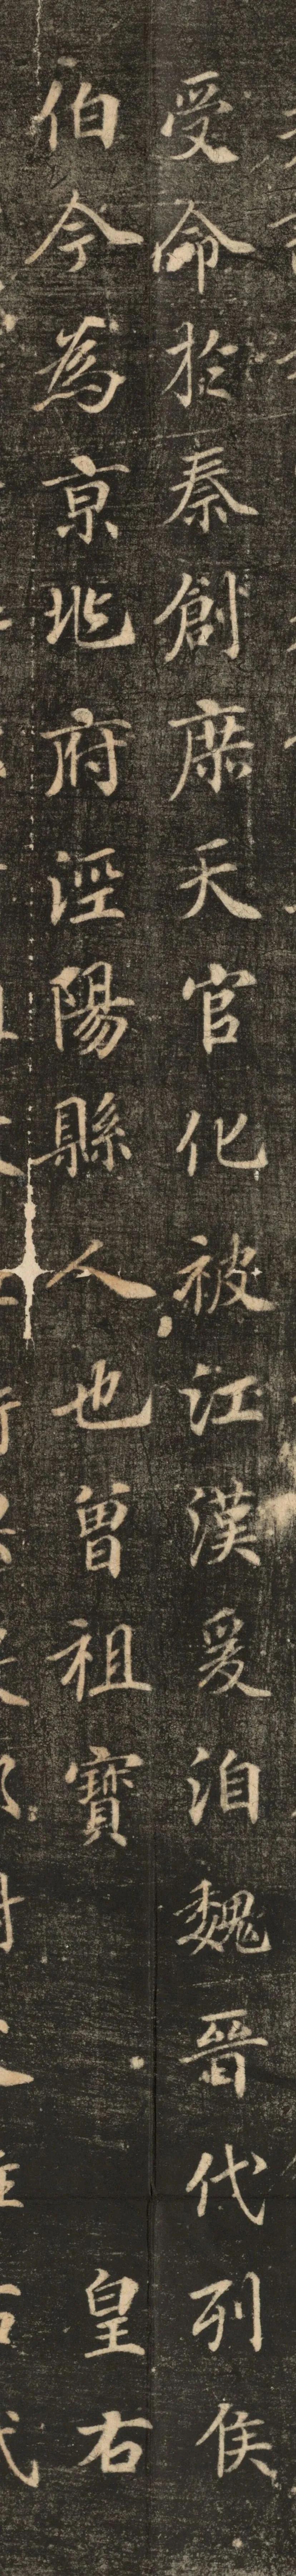 受命於秦創席天官化被江漢爰洎魏晉代列侯
伯今為京兆府涇陽縣人也曾祖寶皇右